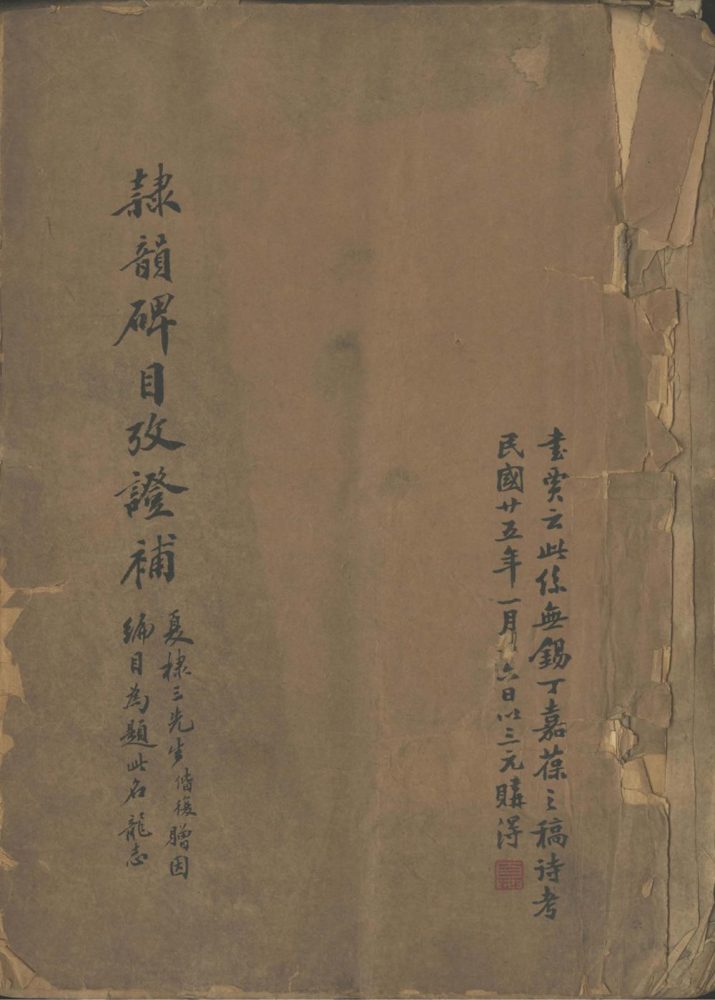 書賈云此係無錫丁嘉葆之稿待考
民國廿五年一月六日以三元購得
隸韻碑目攷證補
夏棣三先生贈因
編目為題此名龍志